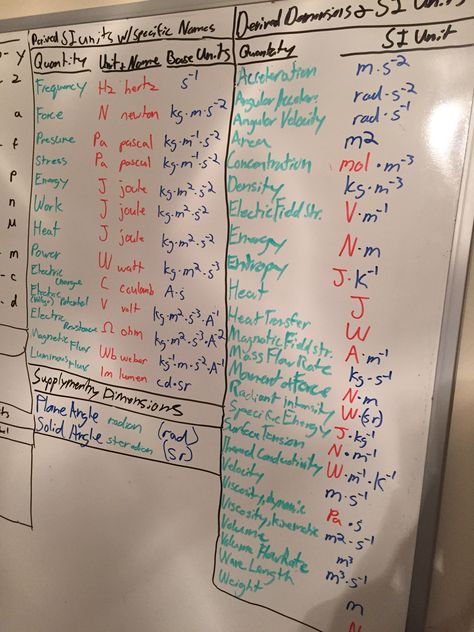 - y
- z
a
- f
p
n
μ
- m
- c
- d
Derived SI units w/ Specific Names
Quantity Unit & Name Base Units
Frequency Hz hertz s⁻¹
Force N newton kg·m·s⁻²
Pressure Pa pascal kg·m⁻¹·s⁻²
Stress Pa pascal kg·m⁻¹·s⁻²
Energy J joule kg·m²·s⁻²
Work J joule kg·m²·s²
Heat J joule kg·m²·s⁻²
Power W watt kg·m²·s³
Electric Charge C coulomb A·s
Electric Potential V volt kg·m²·s⁻³·A⁻¹
Electric Resistance Ω ohm kg·m²·s⁻³·A⁻²
Magnetic Flux Wb weber kg·m²·s⁻²·A⁻¹
Luminous flux lm lumen cd·sr
Supplymentry Dimensions
Plane Angle radian (rad)
Solid Angle steradian (sr)
Derived Dimensions & SI Units
Quantity SI Unit
Acceleration m·s⁻²
Angular Acceler. rad·s⁻²
Angular Velocity rad·s⁻¹
Area m²
Concentration mol·m⁻³
Density kg·m⁻³
Electric Field Str. V·m⁻¹
Energy N·m
Entropy J·K⁻¹
Heat J
Heat Transfer W
Magnetic Field str. A·m⁻¹
Mass Flow Rate kg·s⁻¹
Moment of force N·m
Radiant intensity W·(sr)
Specific Energy J·kg⁻¹
Surface Tension N·m⁻¹
Thermal Conductivity W·m⁻¹·K⁻¹
Velocity m·s⁻¹
Viscosity, dynamic Pa·s
Viscosity, kinematic m²·s⁻¹
Volume m³
Volume Flow Rate m³·s⁻¹
Wave Length m
Weight N